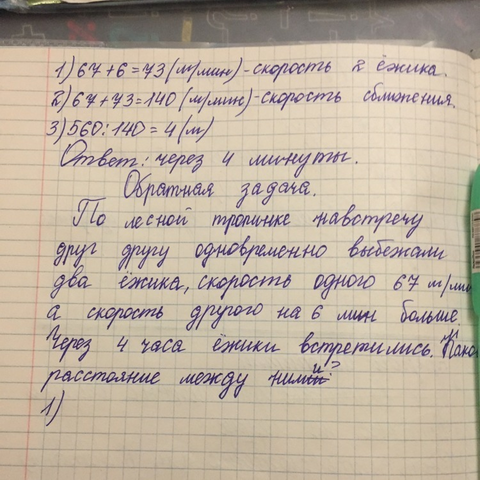 1) 67+6=73 (м/мин)-скорость 2 ёжика.
2) 67+73=140 (м/мин)-скорость сближения.
3) 560:140=4 (м)
Ответ: через 4 минуты.
Обратная задача.
По лесной тропинке навстречу
друг другу одновременно выбежали
два ёжика, скорость одного 67 м/мин
а скорость другого на 6 мин больше
Через 4 часа ёжики встретились. Како
расстояние между ними?
1)